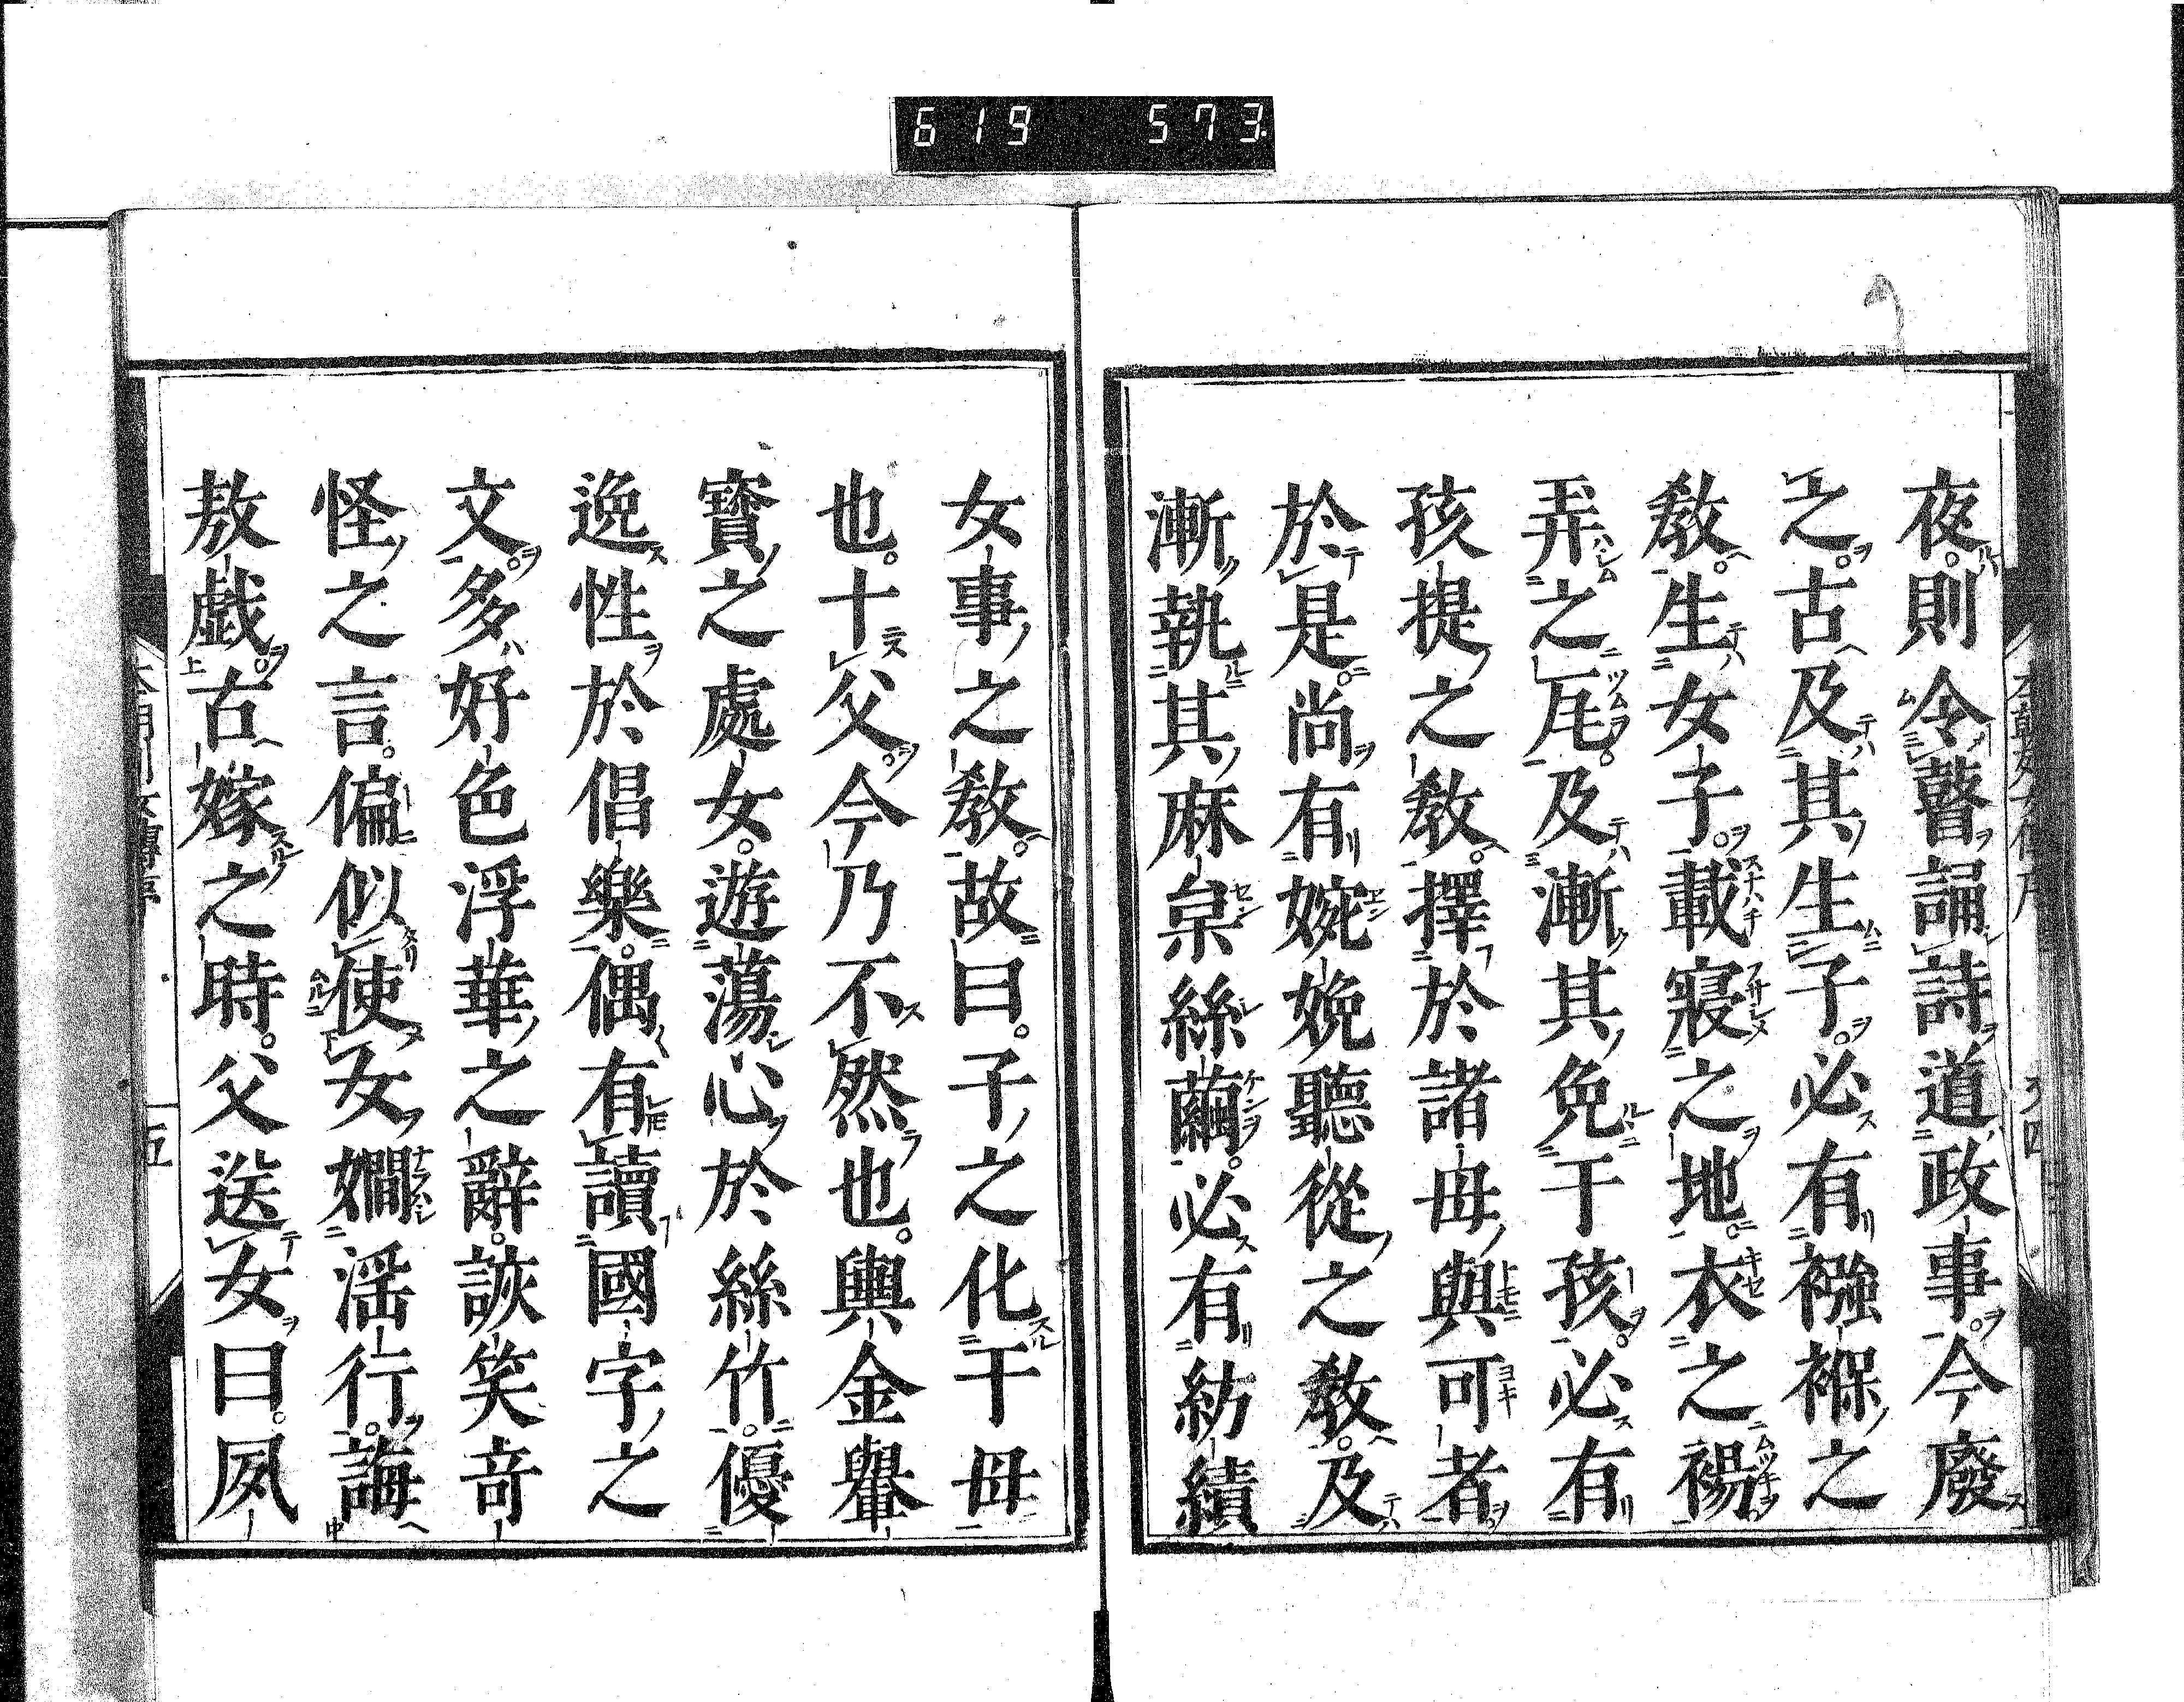 619 573
夜則令瞽誦詩道政事今廢
之古及其生子必有襁褓之
教生女子載寢之地衣之裼
弄之瓦及漸其免干孩必有
孩提之教擇於諸母與可者
於是尚有婉娩聽從之教及
漸執其麻枲絲繭必有紡績
女事之教故曰子之化干母
也十父今乃不然也輿金轝
寶之處女遊蕩心於絲竹優
逸性於倡樂偶有讀國字之
文多好色浮華之辭詼笑奇
怪之言偏似使女嫺淫行誨
敖戯古嫁之時父送女曰夙
五